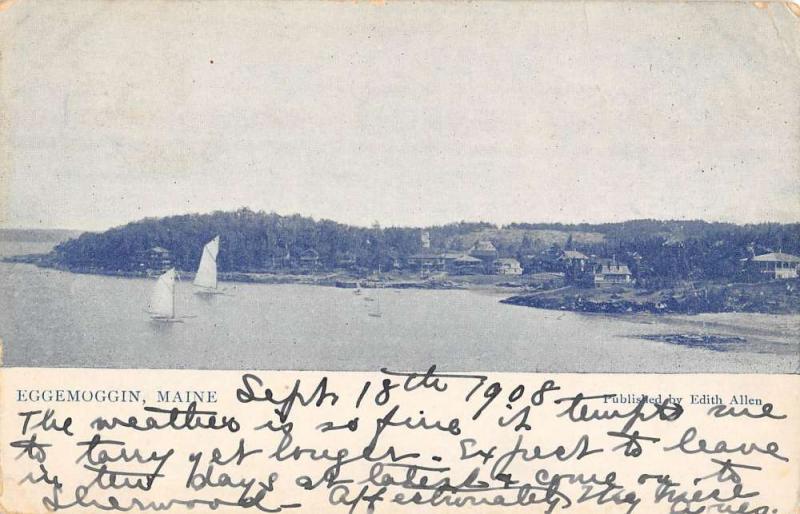 EGGEMOGGIN, MAINE Sept 18th 1908 Published by Edith Allen
The weather is so fine it tempts me
to tarry yet longer. Expect to leave
in ten days at latest & come on to
Sherwood - Affectionately Agnes.